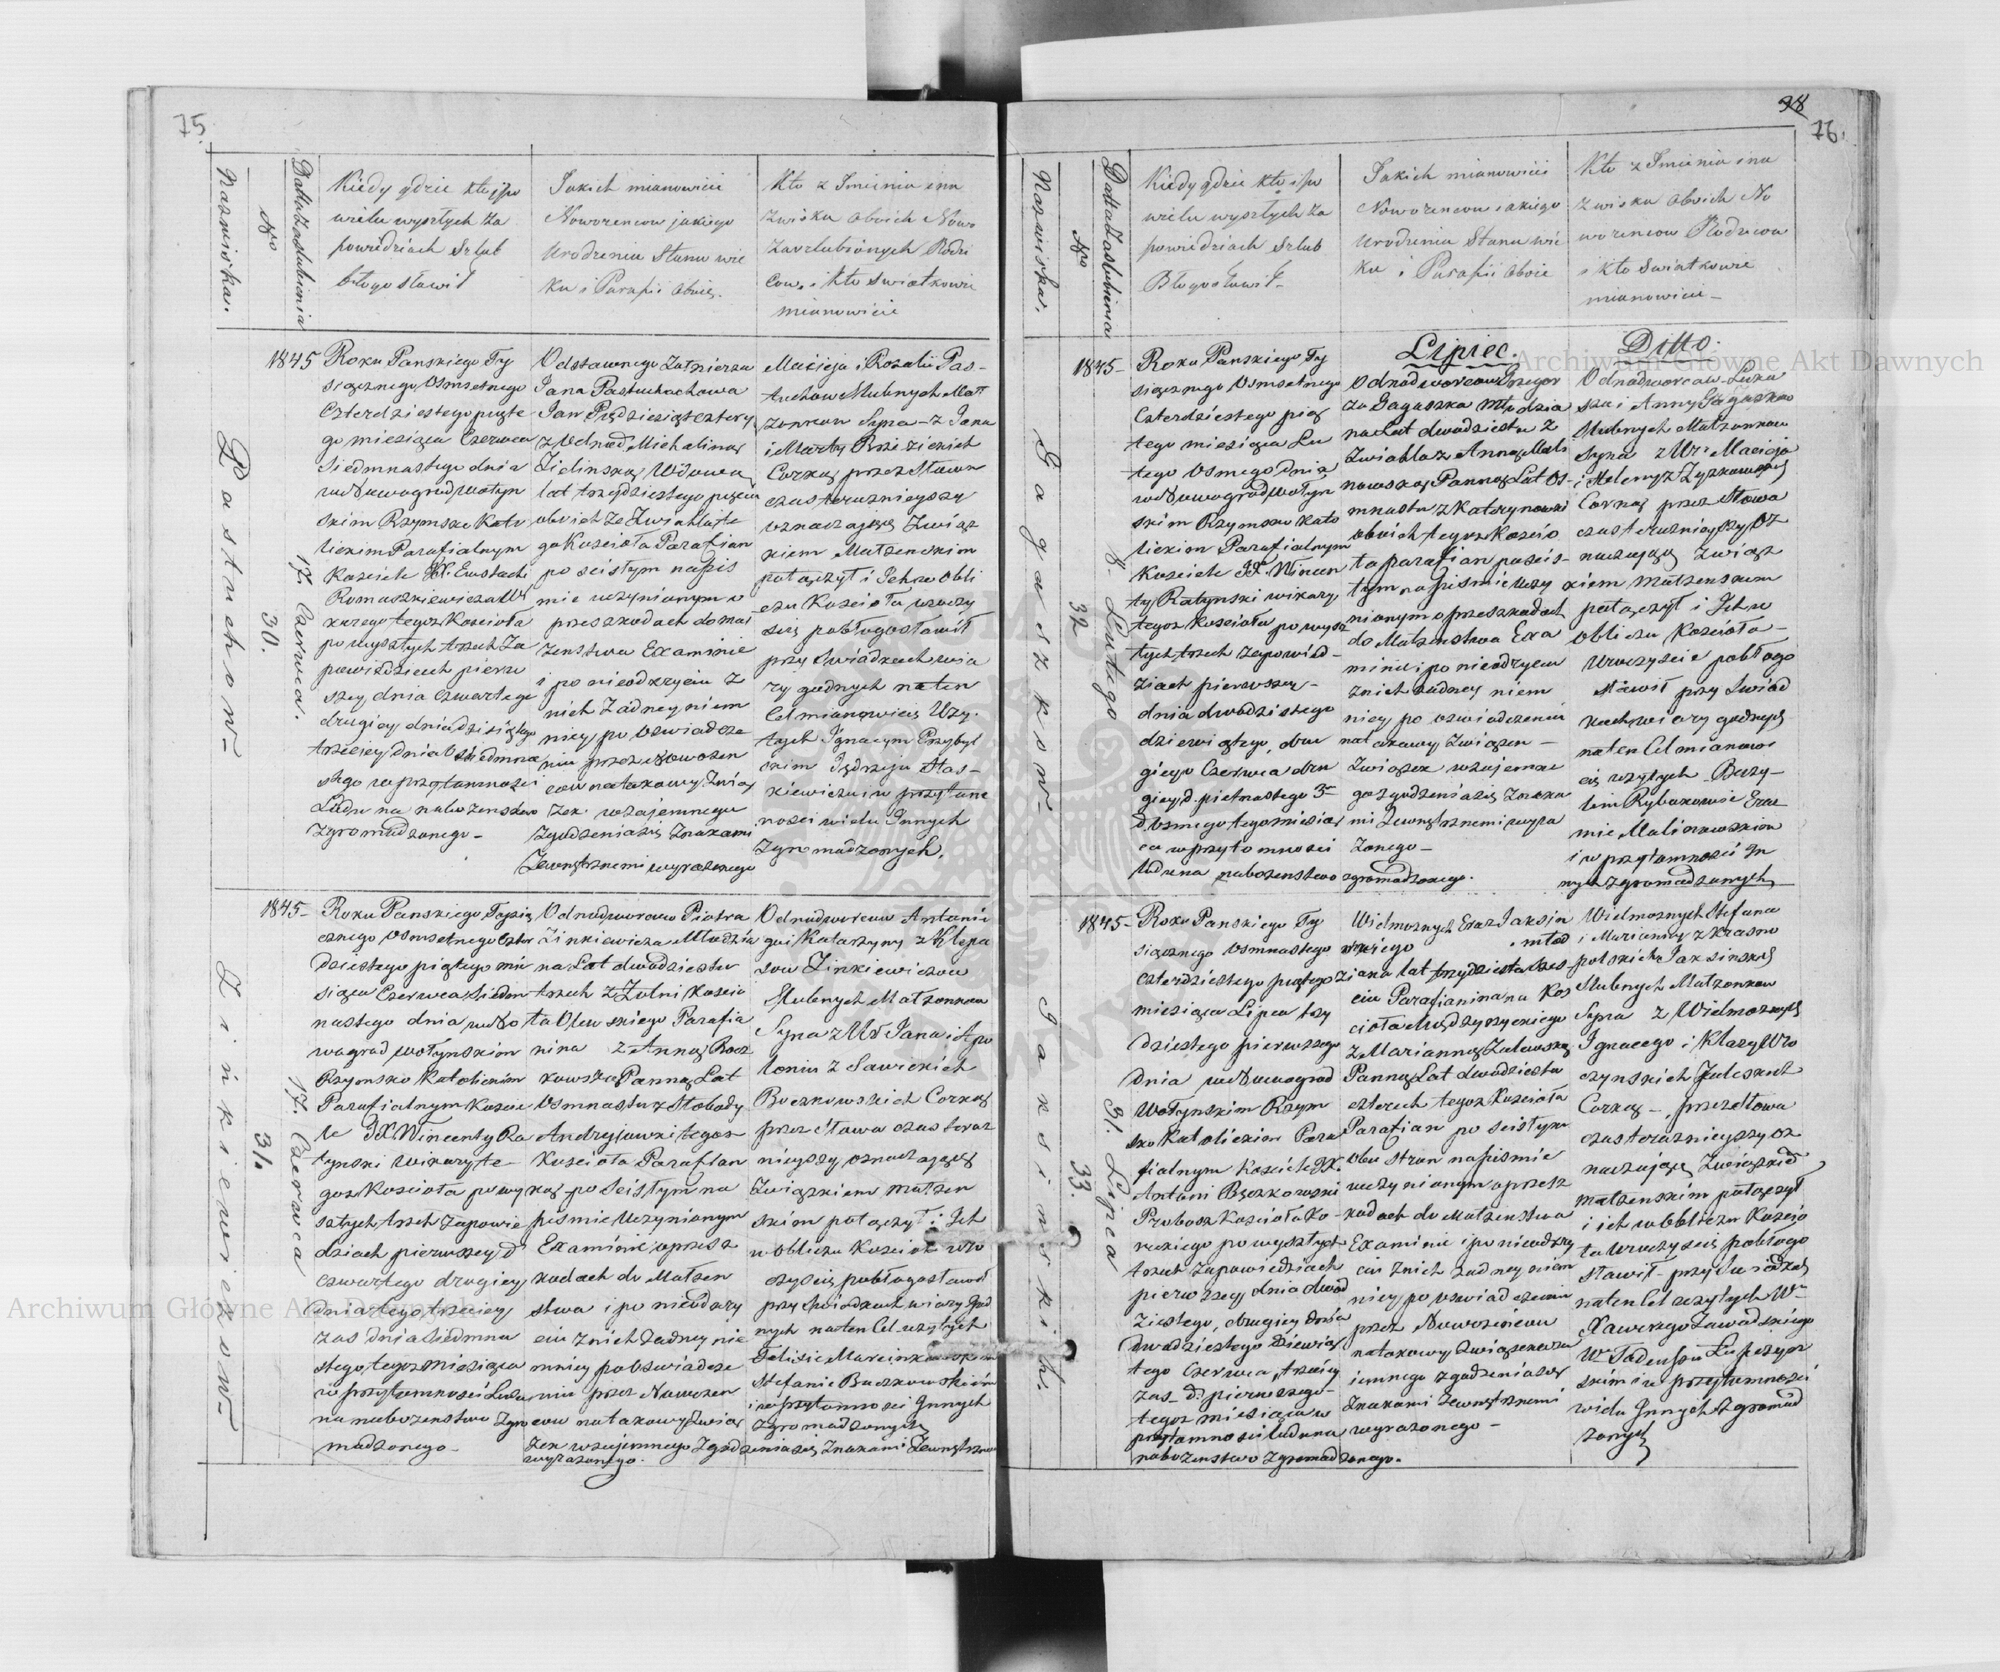 75.
Nazwiska.
No
Datta Zaslubienia
Kiedy gdzie kto i po
wielu wyszłych Za
powiedziach Szlub
błogosławił
Jakich mianowicie
Noworzencow jakiego
Urodzenia Stanu wie
ku i Parafii Oboie.
Kto z Imienia i na
zwiska Oboich Nowo
Zaszlubionych Rodzi
cow, i Kto Swiatkowie
mianowicie
Pastuchow
30.
17. Czerwca.
1845
Roku Panskiego Ty
siącznego Osmsetnego
Czterdziestego piąte
go miesiąca Czerwca
Siedmnastego dnia
w Nowogradwołyn
skim Rzymsko Kato
lickim Parafialnym
Kosciele JX. Eustachi
Romaszkiewicz Wi
karego tegoz Kosciola
po wyszłych trzech Za
powiedziech pierw
szey dnia Czwartego
drugiey dnia dziesiątego
trzeciey dnia Siedmna
stego w przytomnosci
Ludu na nabozenstwo
Zgromadzonego
Odstawnego Zołnierza
Jana Pastuchachowa
Jan Pięćdziesiąt cztery
z Wdnad Michaliną
Zielinską Wdową
lat trzydziestego pięciu
oboich ze Zwiahla te
go Kosciola Parafian
po scistym napis
mie uczynionym o
przeszkodach do mał
zenstwa Examinie
i po nieodkryciu z
nich Zadney niem
niey, po Oswiadcze
niu przez Nowozen
cow na takowy Zwią
zek wzajemnego
Zgodzenia się Znakami
Zewnętrznemi wyrazonego
Macieja i Rozalii Pas-
tuchow Slubnych Mał
zonkow Syna - z Jana
i Marty Brzezickich
Corką, przez Słowa
czas teraznieyszy
oznaczające Związ
kiem Małzenskim
połączył i Ich w obli
czu Kosciola uroczy
scię pobłogosławił
przy Swiadkach wia
ry godnych na ten
Cel mianowicie Uzy
tych Ignacym Przybyl
skim Jędrzeju Stas-
kiewiczu i w przytom
nosci wielu Innych
Zgromadzonych.
Zinkiewiczow
31.
17. Czerwca
1845
Roku Panskiego Tysią
cznego Osmsetnego Czter
dziestego piątego mie
siąca Czerwca Siedm
nastego dnia w Nowo
wagrad wołynskim
Rzymsko Katolickim
Parafialnym Koscie
le JX. Wincenty Ra
tynski Wikary te-
goz Kosciola po wy
szłych trzech Zapowie
dziach pierwszey d.
czwartego drugiey
dnia tego, trzeciey
zas dnia Siedmna
stego, tegoz miesiąca
w przytomnosci Ludu
na nabozenstwo Zgro
madzonego
Odnodworca Piotra
Zinkiewicza Młodzia
na Lat dwadziestu
trzech z Zolni Koscio
ła Olewskiego Parafia
nina z Anną Bocz
kowską Panną Lat
Osmnastu z Słobody
Andryjowki tegoz
Kosciola Parafian
ką, po Scistym na
pismie Uczynionym
Examinie, o przesz
kodach do Małzen
stwa i po nieodkry
ciu z nich Zadney nie
mniey po Oswiadcze
niu przez Nowozen
cow na takowy Związ
zek wzajemnego Zgodzenia się Znakami Zewnętrznemi
wyrazonego.
Odnodworcow Antonie
go i Katarzyny z Klepa
sow Zinkiewiczow
Slubnych Małzonkow
Syna z Ur. Jana i Apo
lonii z Sawickich
Boczkowskich Corką
przez Słowa czas teraz
nieyszy oznaczające
Związkiem Małzen
skim połączył i Ich
w obliczu Kosciola uro
czyscię pobłogosławił
przy Swiadkach wiary god
nych na ten Cel uzytych
Felixie Marcinkowskim
Stefanie Buczkowskim
i w przytomnosci Innych
Zgromadzonych
98
76.
Nazwiska.
No
Datta Zaslubienia
Kiedy gdzie kto i po
wielu wyszłych Za
powiedziach Szlub
Błogosławił
Jakich mianowicie
Noworzencow iakiego
Urodzenia Stanu wie
ku i Parafii Oboie
Kto z Imienia i na
zwiska Oboich No
worzencow Rodzicow
i kto Swiatkowie
mianowicie
Gagaszkow
32
8. Lutego
1845
Roku Panskiego Ty
siącznego Osmsetnego
Czterdziestego pią
tego miesiąca Lu
tego Osmego dnia
w Nowogradwołyn
skim Rzymsko Kato
lickim Parafialnym
Kosciele JX. Wincen
ty Ratynski wikary
tegoz Kosciola po wysz
łych trzech Zapowied
ziach pierwszey
dnia dwadziestego
dziewiątego, dru
giego Czerwca dru
giey d. pietnastego 3
d. Osmego tego miesiąc
ca w przytomnosci
ludu na nabozenstwo zgromadzonego.
Lipiec.
Odnodworcow Grzegor
za Gagaszka Młodzia
na Lat dwadziestu z
Zwiahla z Anną Mali
nowską Panną Lat Os-
mnastu z Katerynowki
oboich tegoz Koscio
ła parafian po scis-
tym na pismie Uczy
nionym o przeszkodach
do Małzenstwa Exa
minie i po nieodkryciu
z nich zadney niem
niey po oswiadczeniu
na takowy Związek
Związek wzajemne
go zgodzenia się Znaka
mi Zewnętrznemi wyra
zonego
Ditto.
Odnodworcow Luka
sza i Anny Gagaszkow
Slubnych Małzonkow
Syna z Ur. Macieja
i Heleny z Zyzkowskich
Corką przez Słowa
czas teraznieyszy oz
naczające Związ
kiem Małzenskim
połączył i Ich w
obliczu Kosciola
Uroczyscie pobłogo
sławił przy Swiad
kach wiary godnych
na ten Cel mianowi
cie uzytych Bazy-
lim Rybakowie Era
mie Malinowskim
i w przytomnosci In
nych zgromadzonych
Jaksinskich.
33.
31. Lipca
1845
Roku Panskiego Ty
siącznego Osmnastego
czterdziestego piątego
miesiąca Lipca trzy
dziestego pierwszego
dnia w Nowograd
Wołynskim Rzym
sko Katolickim Para
fialnym Kosciele JX.
Antoni Bęczkowski
Proboszcz Kosciola Ko-
reckiego po wyszłych
trzech Zapowiedziach
pierwszey dnia dwad
ziestego, drugiey dnia
dwadziestego dziewią
tego Czerwca, trzeciey
zas d. pierwszego
tegoz miesiąca w
przytomnosci ludu na
nabozenstwo zgromadzonego.
Wielmoznych Eraz Jaksin
skiego młod
ziana lat trzydziesta Szes
ciu Parafianina na Kos
ciola Międzyrzyckiego
z Marianną Zulewską
Panną Lat dwadziestu
czterech tegoz Kosciola
Parafian po scistym
obu stron na pismie
uczynionym o przesz
kodach do Małzenstwa
Examinie i po nieodkry
ciu z nich zadney niem
niey, po oswiadczeniu
przez Nowozencow
na takowy Związek wza
jemnego zgodzenia się
Znakami Zewnętrznemi
wyrazonego
Wielmoznych Stefana
i Marianny z Krasno
polskich Jaksinskich
Slubnych Małzonkow
Syna z Wielmoznych
Ignacego i Klary Wro
czynskich Zuleskich
Corką, przez Słowa
czas teraznieyszy oz
naczające Związkiem
małzenskim połączył
i ich w obliczu Koscio
ła Uroczyscię pobłogo
sławił przy Swiadkach
na ten Cel uzytych W.
Xawerego Zawadzkiego
W. Tadeuszu Lipczyn
skim i w przytomnosci
wielu Innych Zgromad
zonych
Archiwum Główne Akt Dawnych
Archiwum Główne Akt Dawnych